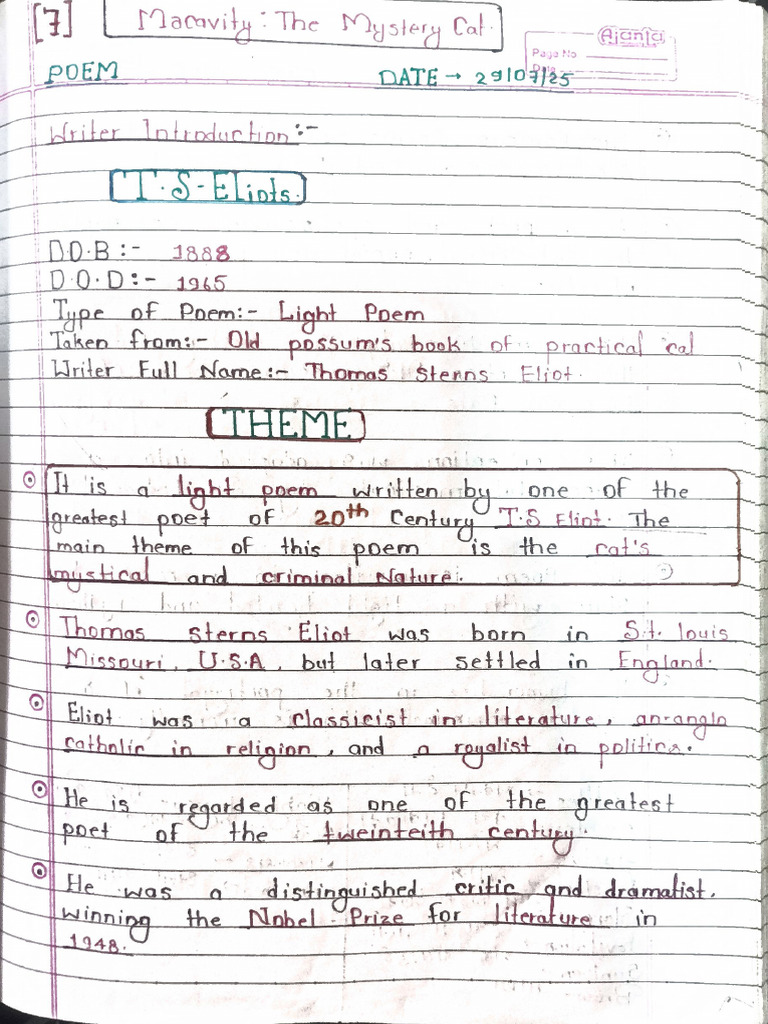 [7] Macavity: The Mystery Cat.
Ajanta
Page No
Date
POEM DATE → 29/07/25
Writer Introduction:-
T.S-Eliots.
D.O.B:- 1888
D.O.D:- 1965
Type of Poem:- Light Poem
Taken from:- Old possum's book of practical cal
Writer Full Name:- Thomas Sterns Eliot.
THEME
It is a light poem written by one of the
greatest poet of 20th Century T.S Eliot. The
main theme of this poem is the cat's
mystical and criminal Nature.
Thomas Sterns Eliot was born in S.t. louis
Missouri, U.S.A, but later settled in England.
Eliot was a classicist in literature, an-anglo
catholic in religion, and a royalist in politics.
He is regarded as one of the greatest
poet of the tweinteith century.
He was a distinguished critic and dramatist.
winning the Nobel Prize for literature in
1948.